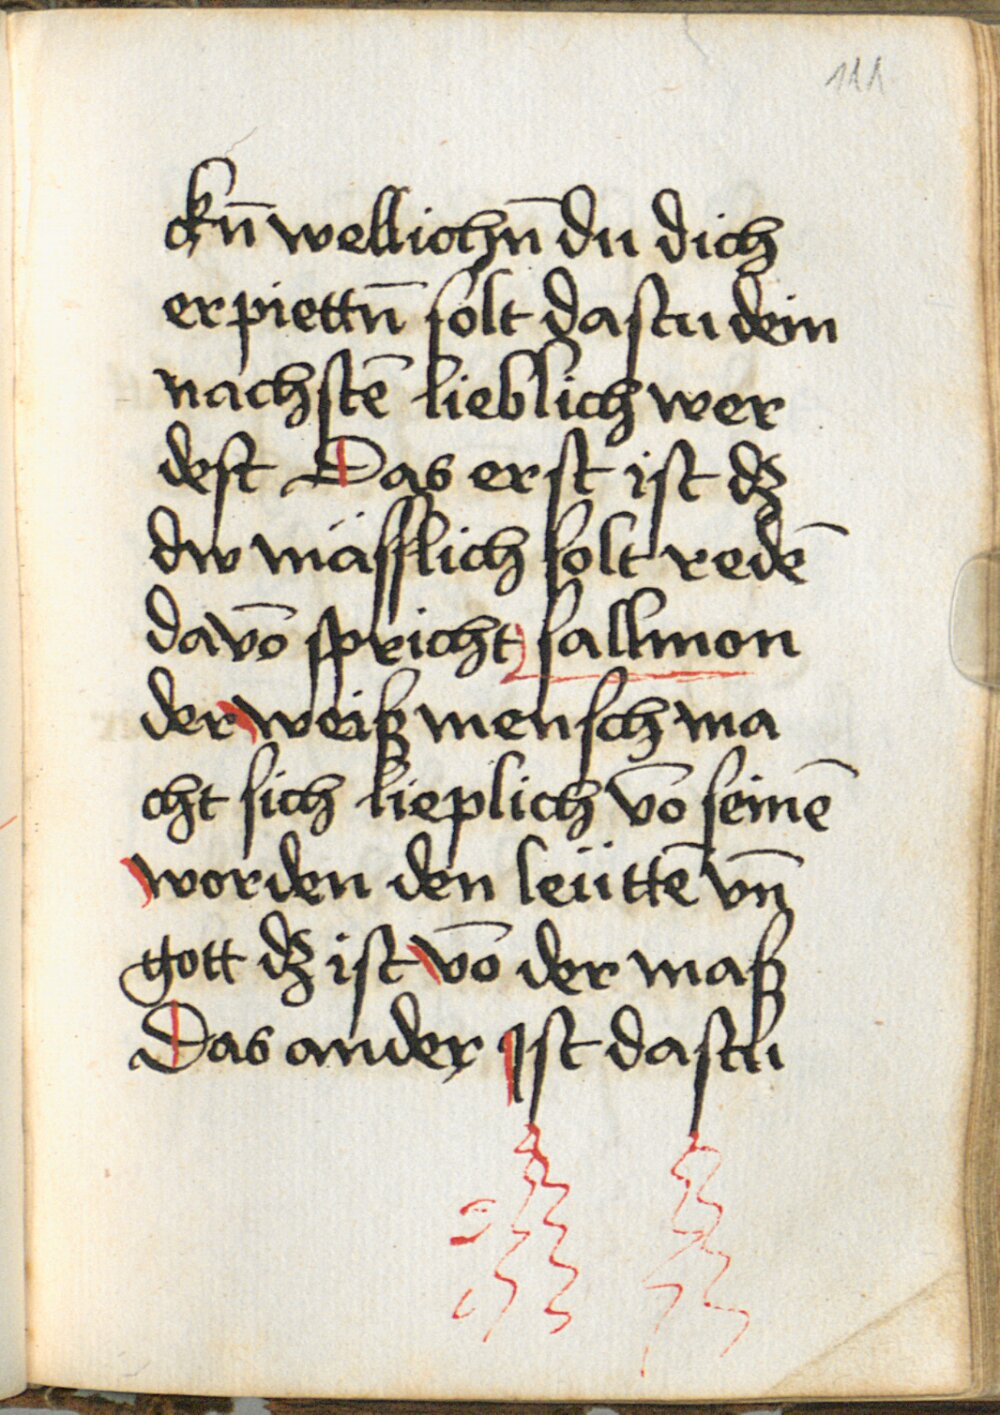 111
ckn̄ wellichn̄ du dich
erpiettn̄ solt dastu dein
nachstē lieblich wer
dest Das erst ist dz
dw mässlich solt redē
davō spricht sallmon
der weiß mensch ma
cht sich lieplich vō seinē
worden den leüttē vn̄
gott dz ist vō der maß
Das ander Ist dastu